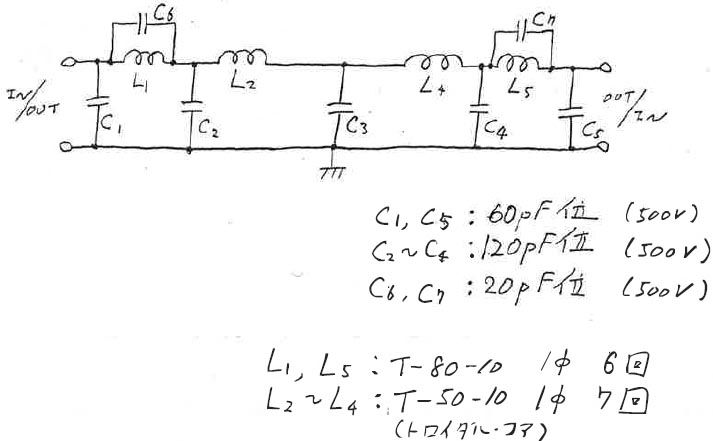 C6
C7
L1
L2
L4
L5
IN/OUT
C1
C2
C3
C4
C5
OUT/IN
C1, C5 : 60pF位 (500V)
C2~C4 : 120pF位 (500V)
C6, C7 : 20pF位 (500V)
L1, L5 : T-80-10 1φ 6回
L2~L4 : T-50-10 1φ 7回
(トロイダル・コア)